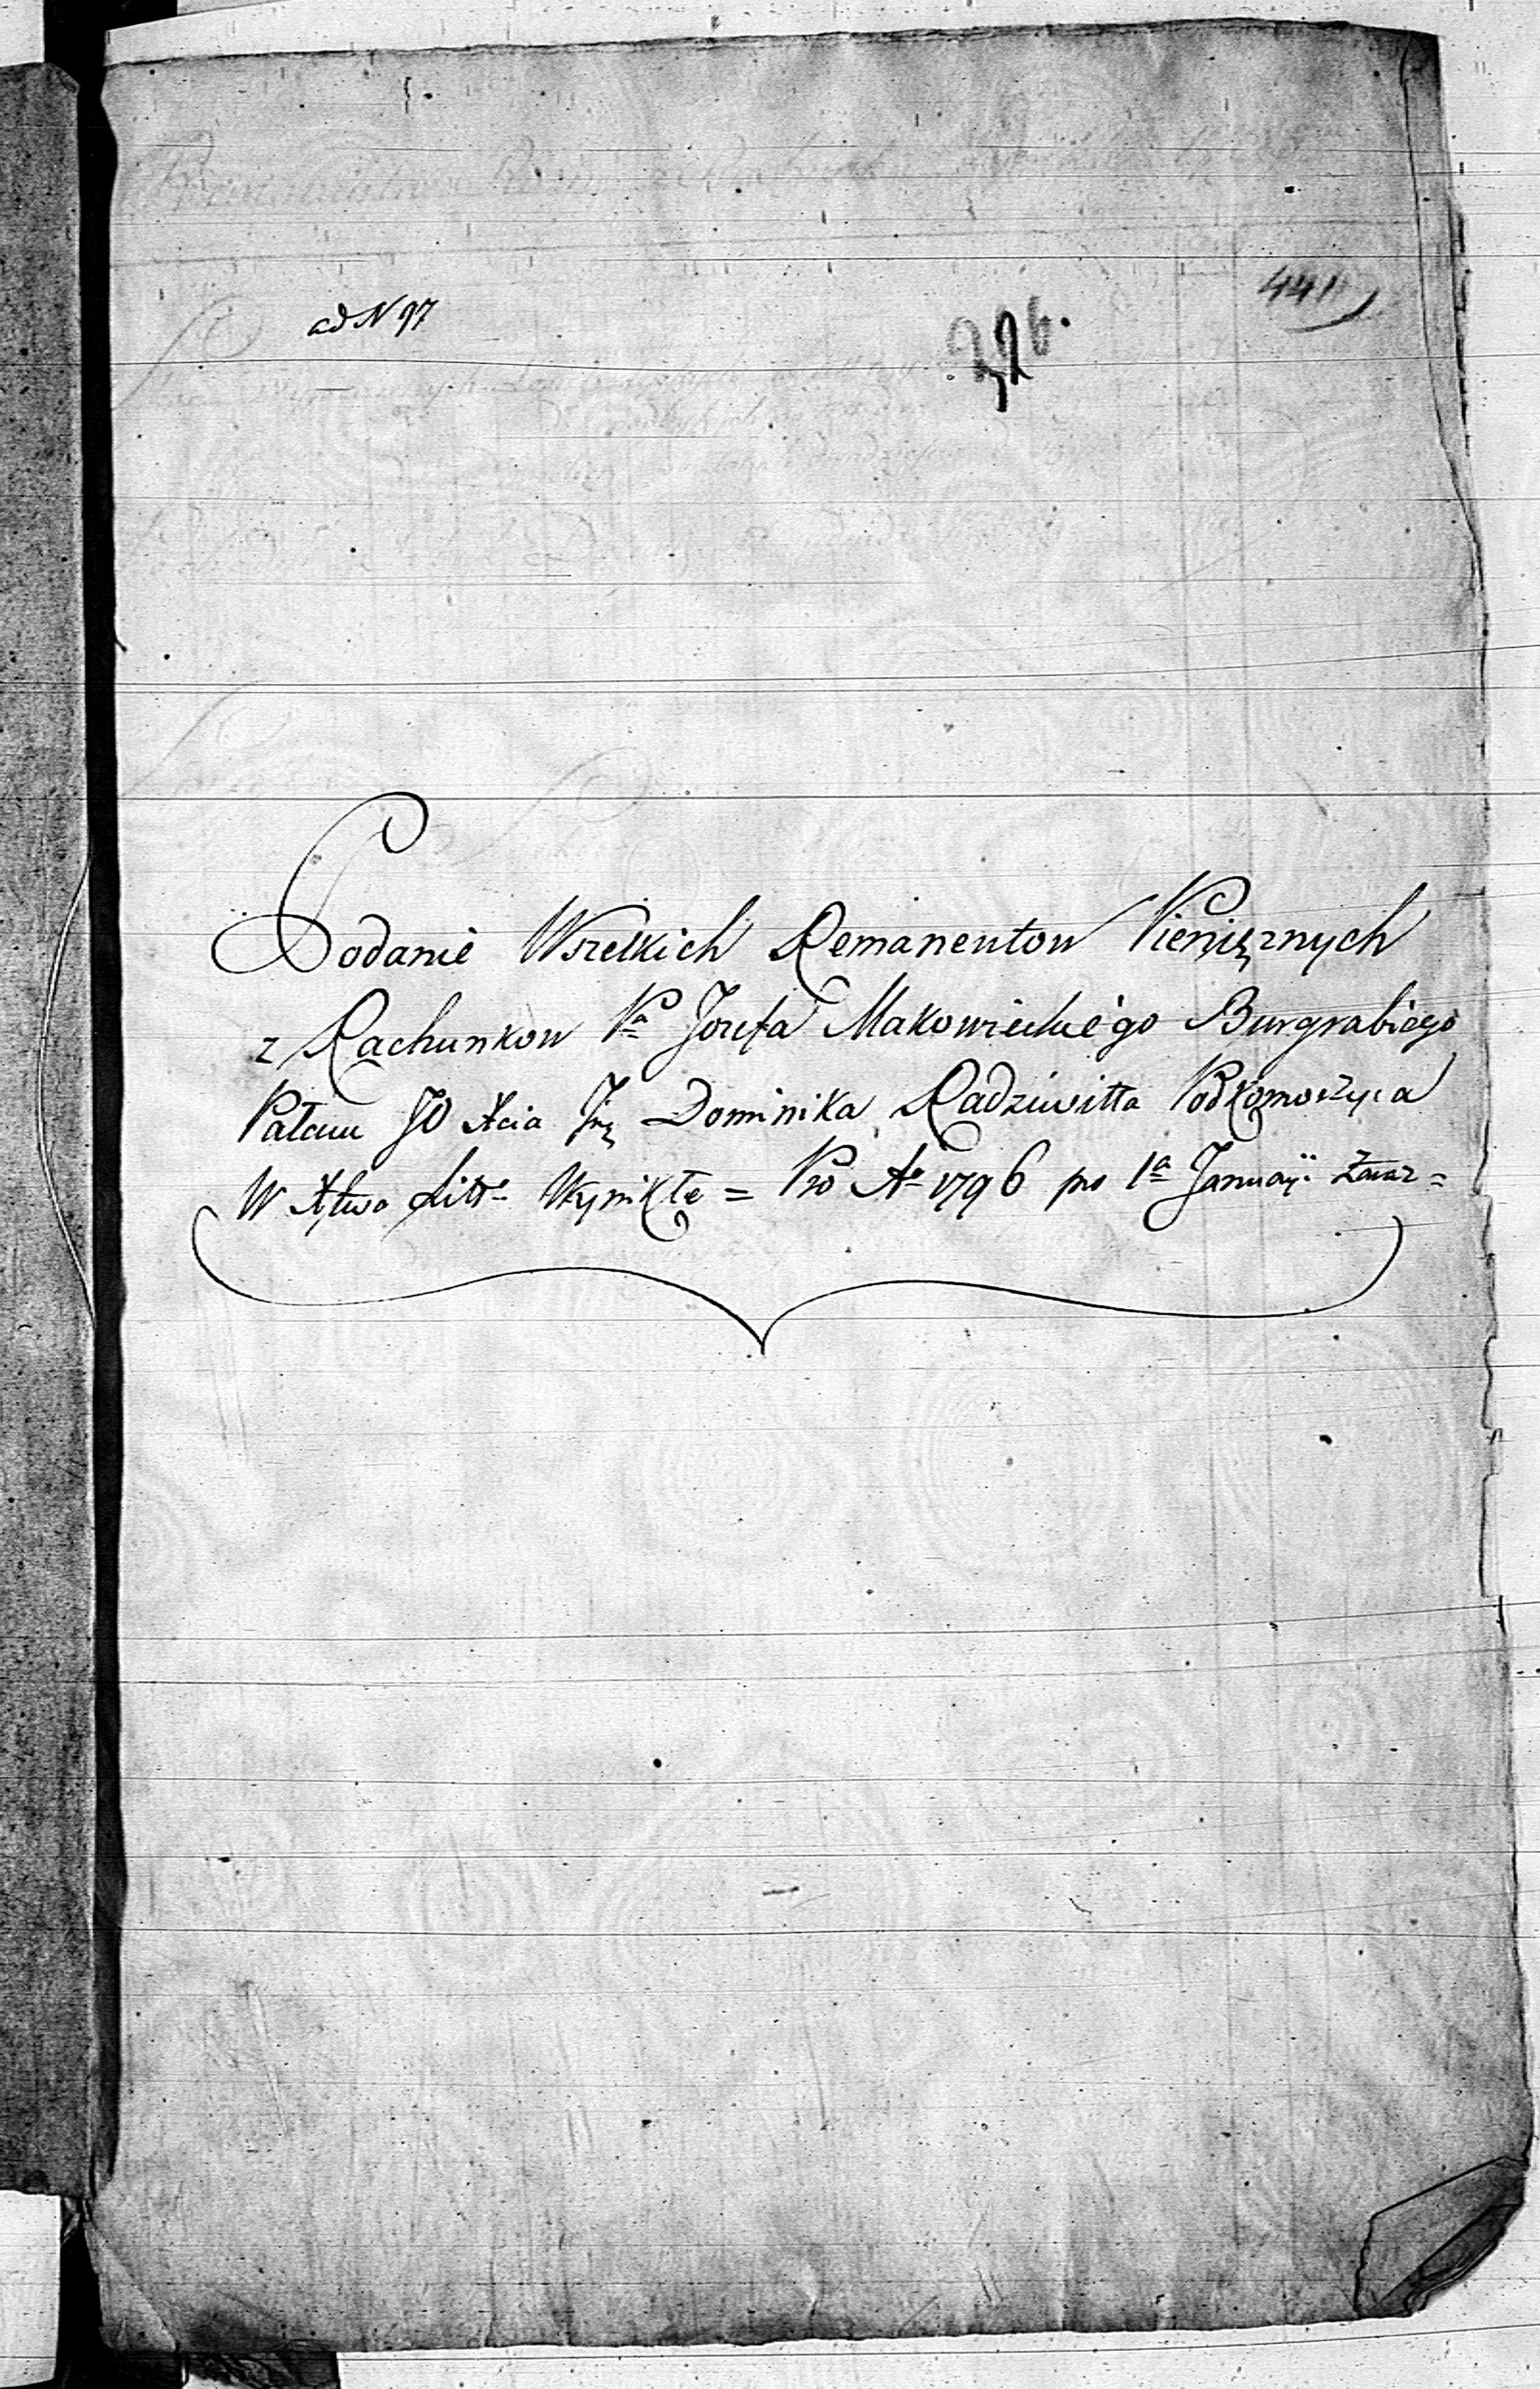 ad N 97
326.
441
Podanie Wszelkich Remanentow Pieniężnych
z Rachunkow Pa Jozefa Makowieckie'go Burgrabiego
Pałacu JO Xcia Jmę Dominika Radziwiłła Podkomorzyca
W Xstwa Litto Wynikłe = Pro Ao 1796 po 1a Januaÿ